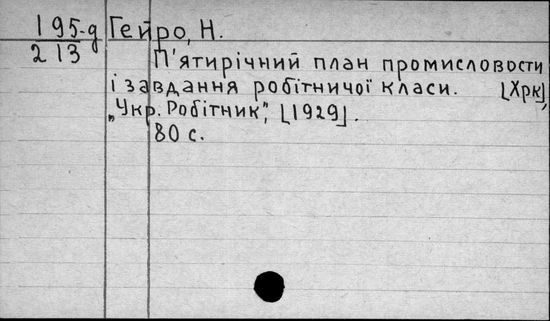 195-д Гейро, Н.
213
П'ятирічний план промисловости
і завдання робітничої класи. [Хрк],
„Укр. Робітник", [1929].
80 с.